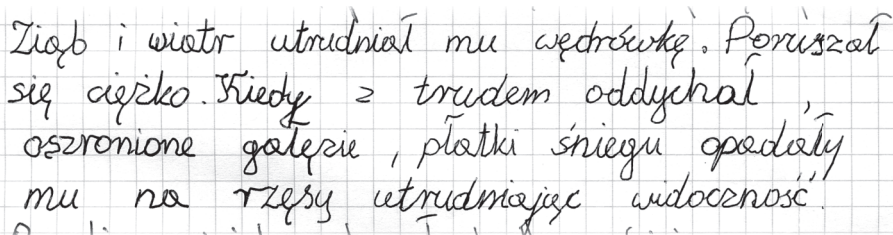 Ziąb i wiatr utrudniał mu wędrówkę. Poruszał
się ciężko. Kiedy z trudem oddychał ,
oszronione gałęzie , płatki śniegu opadały
mu na rzęsy utrudniając widoczność.